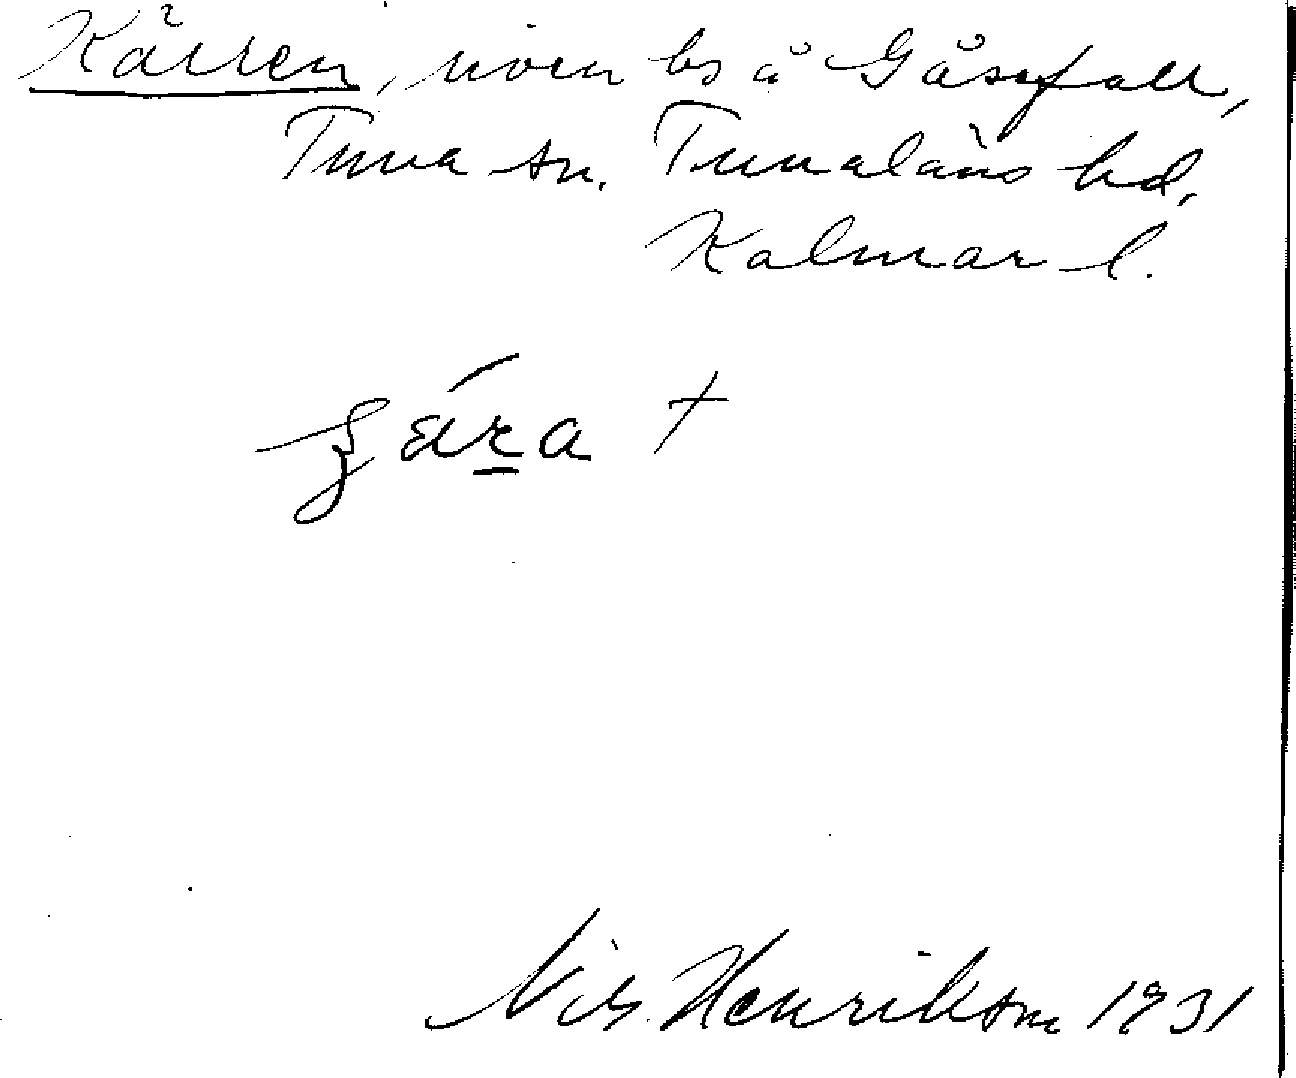 Kärren, riven bs å Gåsefall,
Tuna sn. Tunaläns hd,
Kalmar l.
ára +
Nils Henrikson 1931